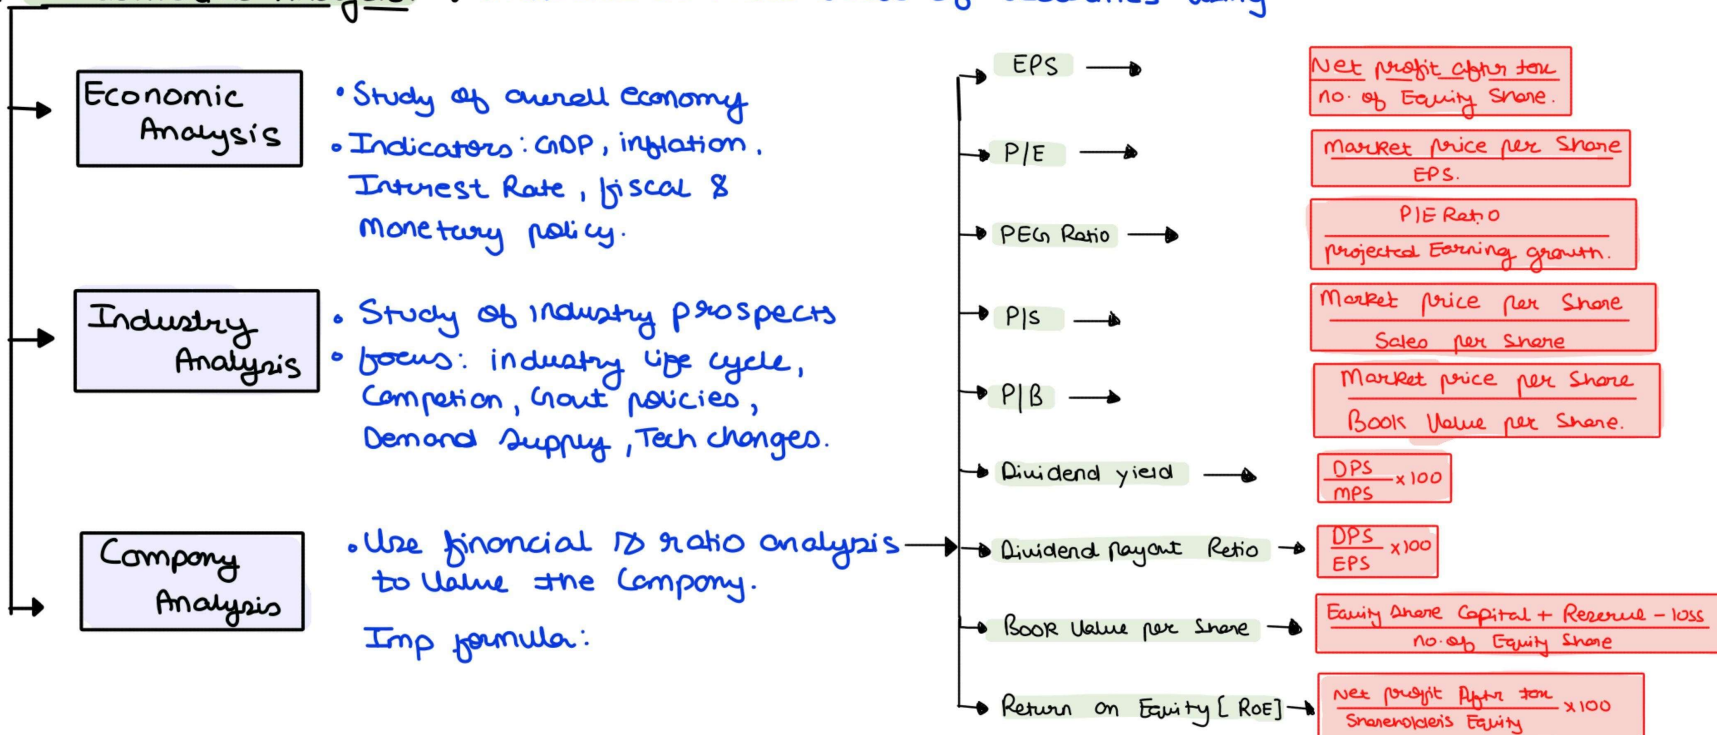 Economic
Analysis
• Study of overall economy
• Indicators: GDP, inflation,
Interest Rate, fiscal &
Monetary policy.
Industry
Analysis
• Study of industry prospects
• focus: industry life cycle,
Compettion, Govt policies,
Demand Supply, Tech changes.
Company
Analysis
• Use financial & ratio analysis
to Value the Company.
Imp formula:
EPS
Net profit after tax
no. of Equity Share.
P/E
Market price per Share
EPS.
PEG Ratio
P/E Ratio
projected Earning growth.
P/S
Market price per Share
Sales per Share
P/B
Market price per Share
Book Value per Share.
Dividend yield
DPS
MPS ×100
Dividend payout Ratio
DPS
EPS ×100
Book Value per Share
Equity Share Capital + Reserve - loss
no. of Equity Share
Return on Equity [ROE]
Net profit After tax
Shareholders Equity ×100